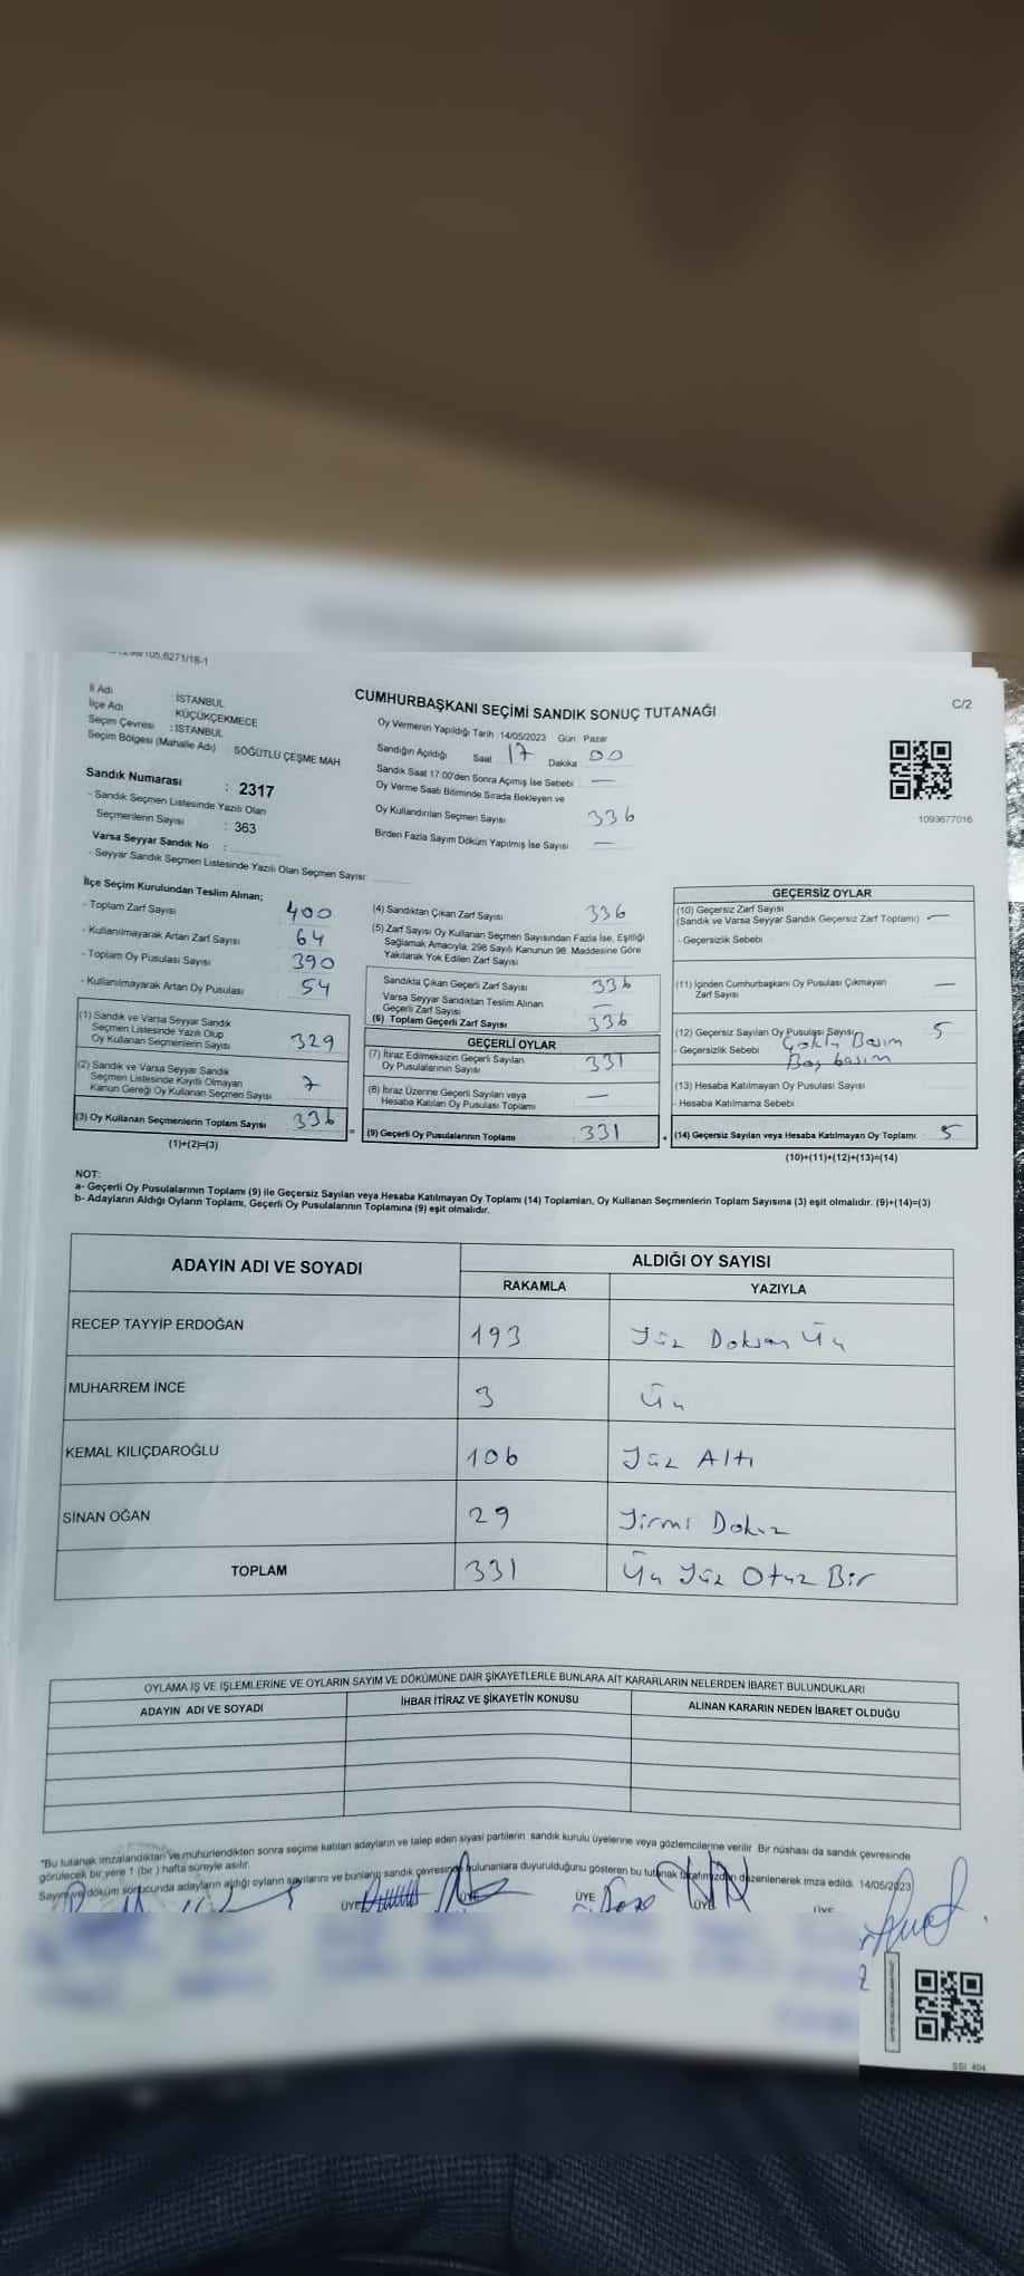 İl Adı : İSTANBUL
İlçe Adı : KÜÇÜKÇEKMECE
Seçim Çevresi : İSTANBUL
Seçim Bölgesi (Mahalle Adı) SÖĞÜTLÜ ÇEŞME MAH
Sandık Numarası : 2317
- Sandık Seçmen Listesinde Yazılı Olan
Seçmenlerin Sayısı : 363
Varsa Seyyar Sandık No :
- Seyyar Sandık Seçmen Listesinde Yazılı Olan Seçmen Sayısı
CUMHURBAŞKANI SEÇİMİ SANDIK SONUÇ TUTANAĞI
C/2
Oy Vermenin Yapıldığı Tarih 14/05/2023 Gün Pazar
Sandığın Açıldığı Saat 17 Dakika 00
Sandık Saat 17.00'den Sonra Açımış İse Sebebi —
Oy Verme Saati Bitiminde Sırada Bekleyen ve
Oy Kullandırılan Seçmen Sayısı 336
Birden Fazla Sayım Döküm Yapılmış İse Sayısı —
1093677016
İlçe Seçim Kurulundan Teslim Alınan;
- Toplam Zarf Sayısı 400
- Kullanılmayarak Artan Zarf Sayısı 64
- Toplam Oy Pusulası Sayısı 390
- Kullanılmayarak Artan Oy Pusulası 54
(1) Sandık ve Varsa Seyyar Sandık
Seçmen Listesinde Yazılı Olup
Oy Kullanan Seçmenlerin Sayısı 329
(2) Sandık ve Varsa Seyyar Sandık
Seçmen Listesinde Kayıtlı Olmayan
Kanun Gereği Oy Kullanan Seçmen Sayısı 7
(3) Oy Kullanan Seçmenlerin Toplam Sayısı 336
(1)+(2)=(3)
(4) Sandıktan Çıkan Zarf Sayısı 336
(5) Zarf Sayısı Oy Kullanan Seçmen Sayısından Fazla İse, Eşitliği
Sağlamak Amacıyla, 298 Sayılı Kanunun 98. Maddesine Göre
Yakılarak Yok Edilen Zarf Sayısı
Sandıkta Çıkan Geçerli Zarf Sayısı 336
Varsa Seyyar Sandıktan Teslim Alınan
Geçerli Zarf Sayısı —
(6) Toplam Geçerli Zarf Sayısı 336
GEÇERLİ OYLAR
(7) İtiraz Edilmeksizin Geçerli Sayılan
Oy Pusulalarının Sayısı 331
(8) İtiraz Üzerine Geçerli Sayılan veya
Hesaba Katılan Oy Pusulası Toplamı —
(9) Geçerli Oy Pusulalarının Toplamı 331
GEÇERSİZ OYLAR
(10) Geçersiz Zarf Sayısı
(Sandık ve Varsa Seyyar Sandık Geçersiz Zarf Toplamı) —
- Geçersizlik Sebebi
(11) İçinden Cumhurbaşkanı Oy Pusulası Çıkmayan
Zarf Sayısı —
(12) Geçersiz Sayılan Oy Pusulası Sayısı 5
- Geçersizlik Sebebi Çoklu Basım
Boş basım
(13) Hesaba Katılmayan Oy Pusulası Sayısı
- Hesaba Katılmama Sebebi
(14) Geçersiz Sayılan veya Hesaba Katılmayan Oy Toplamı 5
(10)+(11)+(12)+(13)=(14)
NOT:
a- Geçerli Oy Pusulalarının Toplamı (9) ile Geçersiz Sayılan veya Hesaba Katılmayan Oy Toplamı (14) Toplamları, Oy Kullanan Seçmenlerin Toplam Sayısına (3) eşit olmalıdır. (9)+(14)=(3)
b- Adayların Aldığı Oyların Toplamı, Geçerli Oy Pusulalarının Toplamına (9) eşit olmalıdır.
ADAYIN ADI VE SOYADI
ALDIĞI OY SAYISI
RAKAMLA YAZIYLA
RECEP TAYYİP ERDOĞAN 193 Yüz Doksan Üç
MUHARREM İNCE 3 Üç
KEMAL KILIÇDAROĞLU 106 Yüz Altı
SİNAN OĞAN 29 Yirmi Dokuz
TOPLAM 331 Üç Yüz Otuz Bir
OYLAMA İŞ VE İŞLEMLERİNE VE OYLARIN SAYIM VE DÖKÜMÜNE DAİR ŞİKAYETLERLE BUNLARA AİT KARARLARIN NELERDEN İBARET BULUNDUKLARI
ADAYIN ADI VE SOYADI
İHBAR İTİRAZ VE ŞİKAYETİN KONUSU
ALINAN KARARIN NEDEN İBARET OLDUĞU
"Bu tutanak imzalandıktan ve mühürlendikten sonra seçime katılan adayların ve talep eden siyasi partilerin sandık kurulu üyelerine veya gözlemcilerine verilir. Bir nüshası da sandık çevresinde
görülecek bir yere 1 (bir) hafta süreyle asılır.
Sayım ve döküm sonucunda adayların aldığı oyların sayılarını ve bunların sandık çevresinde bulunanlara duyurulduğunu gösteren bu tutanak tarafımızdan düzenlenerek imza edildi. 14/05/2023
ÜYE ÜYE ÜYE ÜYE ÜYE
SSI 404